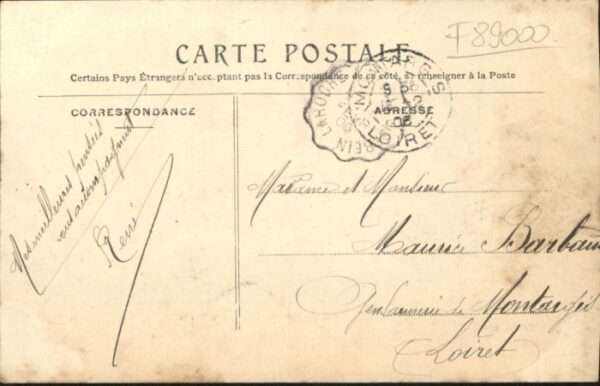 F89000
CARTE POSTALE
Certains Pays Étrangers n'acceptant pas la Correspondance de ce côté, se renseigner à la Poste
CORRESPONDANCE
ADRESSE
MONTARGIS
LOIRET
Mes meilleures pensées
vous accompagnent
René
Madame et Monsieur
Maurice
Gendarmerie de Montargis
Loiret